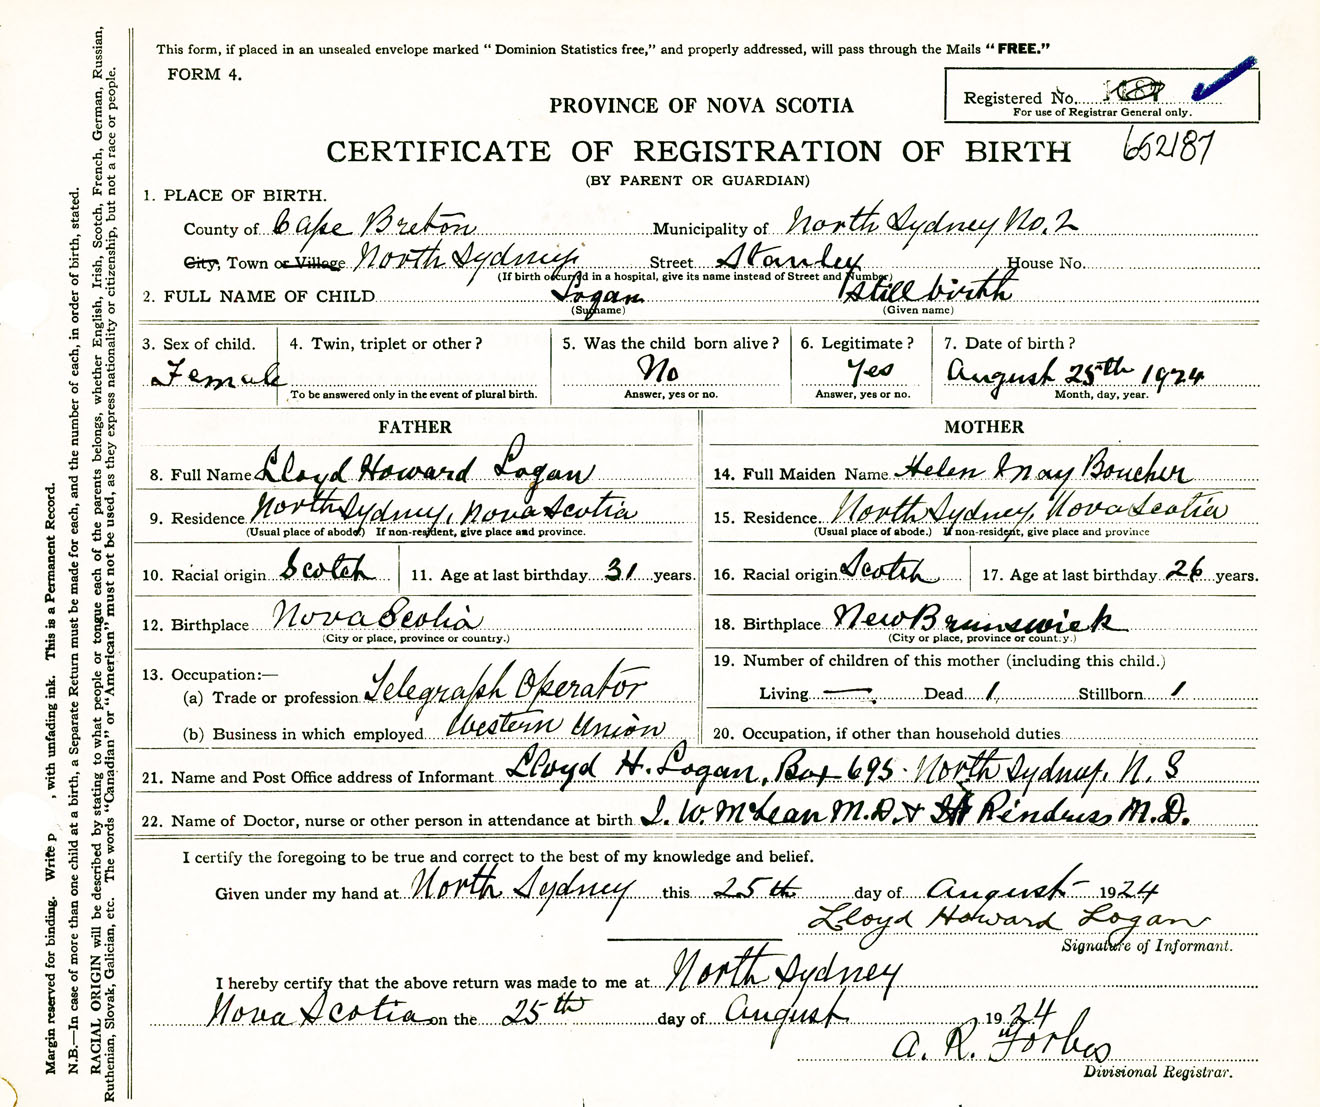 This form, if placed in an unsealed envelope marked “Dominion Statistics free,” and properly addressed, will pass through the Mails “FREE.”
FORM 4.
Registered No.
For use of Registrar General only.
PROVINCE OF NOVA SCOTIA
CERTIFICATE OF REGISTRATION OF BIRTH 652187
(BY PARENT OR GUARDIAN)
1. PLACE OF BIRTH.
County of Cape Breton Municipality of North Sydney No. 2
City, Town or Village North Sydney Street Stanley House No.
(If birth occurred in a hospital, give its name instead of Street and Number)
2. FULL NAME OF CHILD Logan Stillbirth
(Surname) (Given name)
3. Sex of child. 4. Twin, triplet or other? 5. Was the child born alive? 6. Legitimate? 7. Date of birth?
Female No Yes August 25th 1924
To be answered only in the event of plural birth. Answer, yes or no. Answer, yes or no. Month, day, year.
FATHER MOTHER
8. Full Name Lloyd Howard Logan 14. Full Maiden Name Helen May Boucher
9. Residence North Sydney, Nova Scotia 15. Residence North Sydney, Nova Scotia
(Usual place of abode.) If non-resident, give place and province. (Usual place of abode.) If non-resident, give place and province
10. Racial origin Scotch 11. Age at last birthday 31 years. 16. Racial origin Scotch 17. Age at last birthday 26 years.
12. Birthplace Nova Scotia 18. Birthplace New Brunswick
(City or place, province or country.) (City or place, province or country.)
13. Occupation:— 19. Number of children of this mother (including this child.)
(a) Trade or profession Telegraph Operator Living — Dead 1 Stillborn 1
(b) Business in which employed Western Union 20. Occupation, if other than household duties
21. Name and Post Office address of Informant Lloyd H. Logan, Box 695 - North Sydney, N. S
22. Name of Doctor, nurse or other person in attendance at birth J. W. McLean M.D. & M.D.
I certify the foregoing to be true and correct to the best of my knowledge and belief.
Given under my hand at North Sydney this 25th day of August 1924
Lloyd Howard Logan
Signature of Informant.
I hereby certify that the above return was made to me at North Sydney
Nova Scotia on the 25th day of August 1924
A. R. Forbes
Divisional Registrar.
Margin reserved for binding. Write p , with unfading ink. This is a Permanent Record.
N.B.—In case of more than one child at a birth, a Separate Return must be made for each, and the number of each, in order of birth, stated.
RACIAL ORIGIN will be described by stating to what people or tongue each of the parents belongs, whether English, Irish, Scotch, French, German, Russian,
Ruthenian, Slovak, Galician, etc. The words “Canadian” or “American” must not be used, as they express nationality or citizenship, but not a race or people.